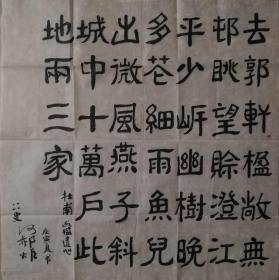 去郭軒楹敞無
邨眺望賒澄江
平少岸幽樹晚
多花細雨魚兒
出微風燕子斜
城中十萬戶此
地兩三家
杜甫 水檻遣心
庚寅夏书